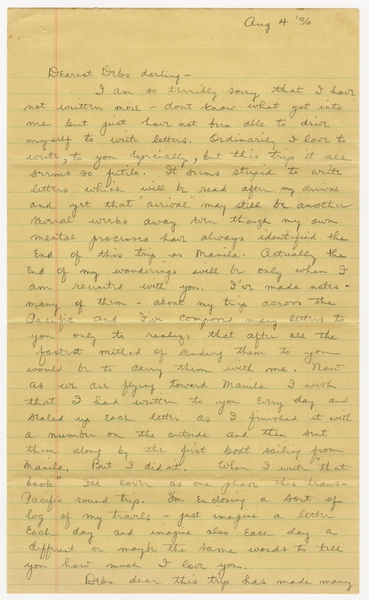 Aug 4 '36
Dearest Debs darling -
I am so terribly sorry that I have
not written more - dont know what got into
me but just have not been able to drive
myself to write letters. Ordinarily I love to
write, to you especially, but this trip it all
seems so futile. It seems stupid to write
letters which will be read after my arrival
and yet that "arrival" may still be another
several weeks away even though my own
mental processes have always identified the
End of this trip as Manila. Actually the
End of my wanderings will be only when I
am reunited with you. I've made notes -
many of them - about my trip across the
Pacific and I've composed many letters to
you only to realize that after all the
fastest method of sending them to you
would be to carry them with me. Now
as we are flying toward Manila I wish
that I had written to you Every day and
sealed up Each letter as I finished it with
a number on the outside and then sent
them along by the first boat sailing from
Manila. But I did not. When I write "that
book" I'll cover as one phase this trans-
Pacific round trip. I'm Enclosing a sort of
log of my travels - just imagine a letter
Each day and imagine also Each day a
different or maybe the same words to tell
you how much I love you.
Debs dear this trip has made many